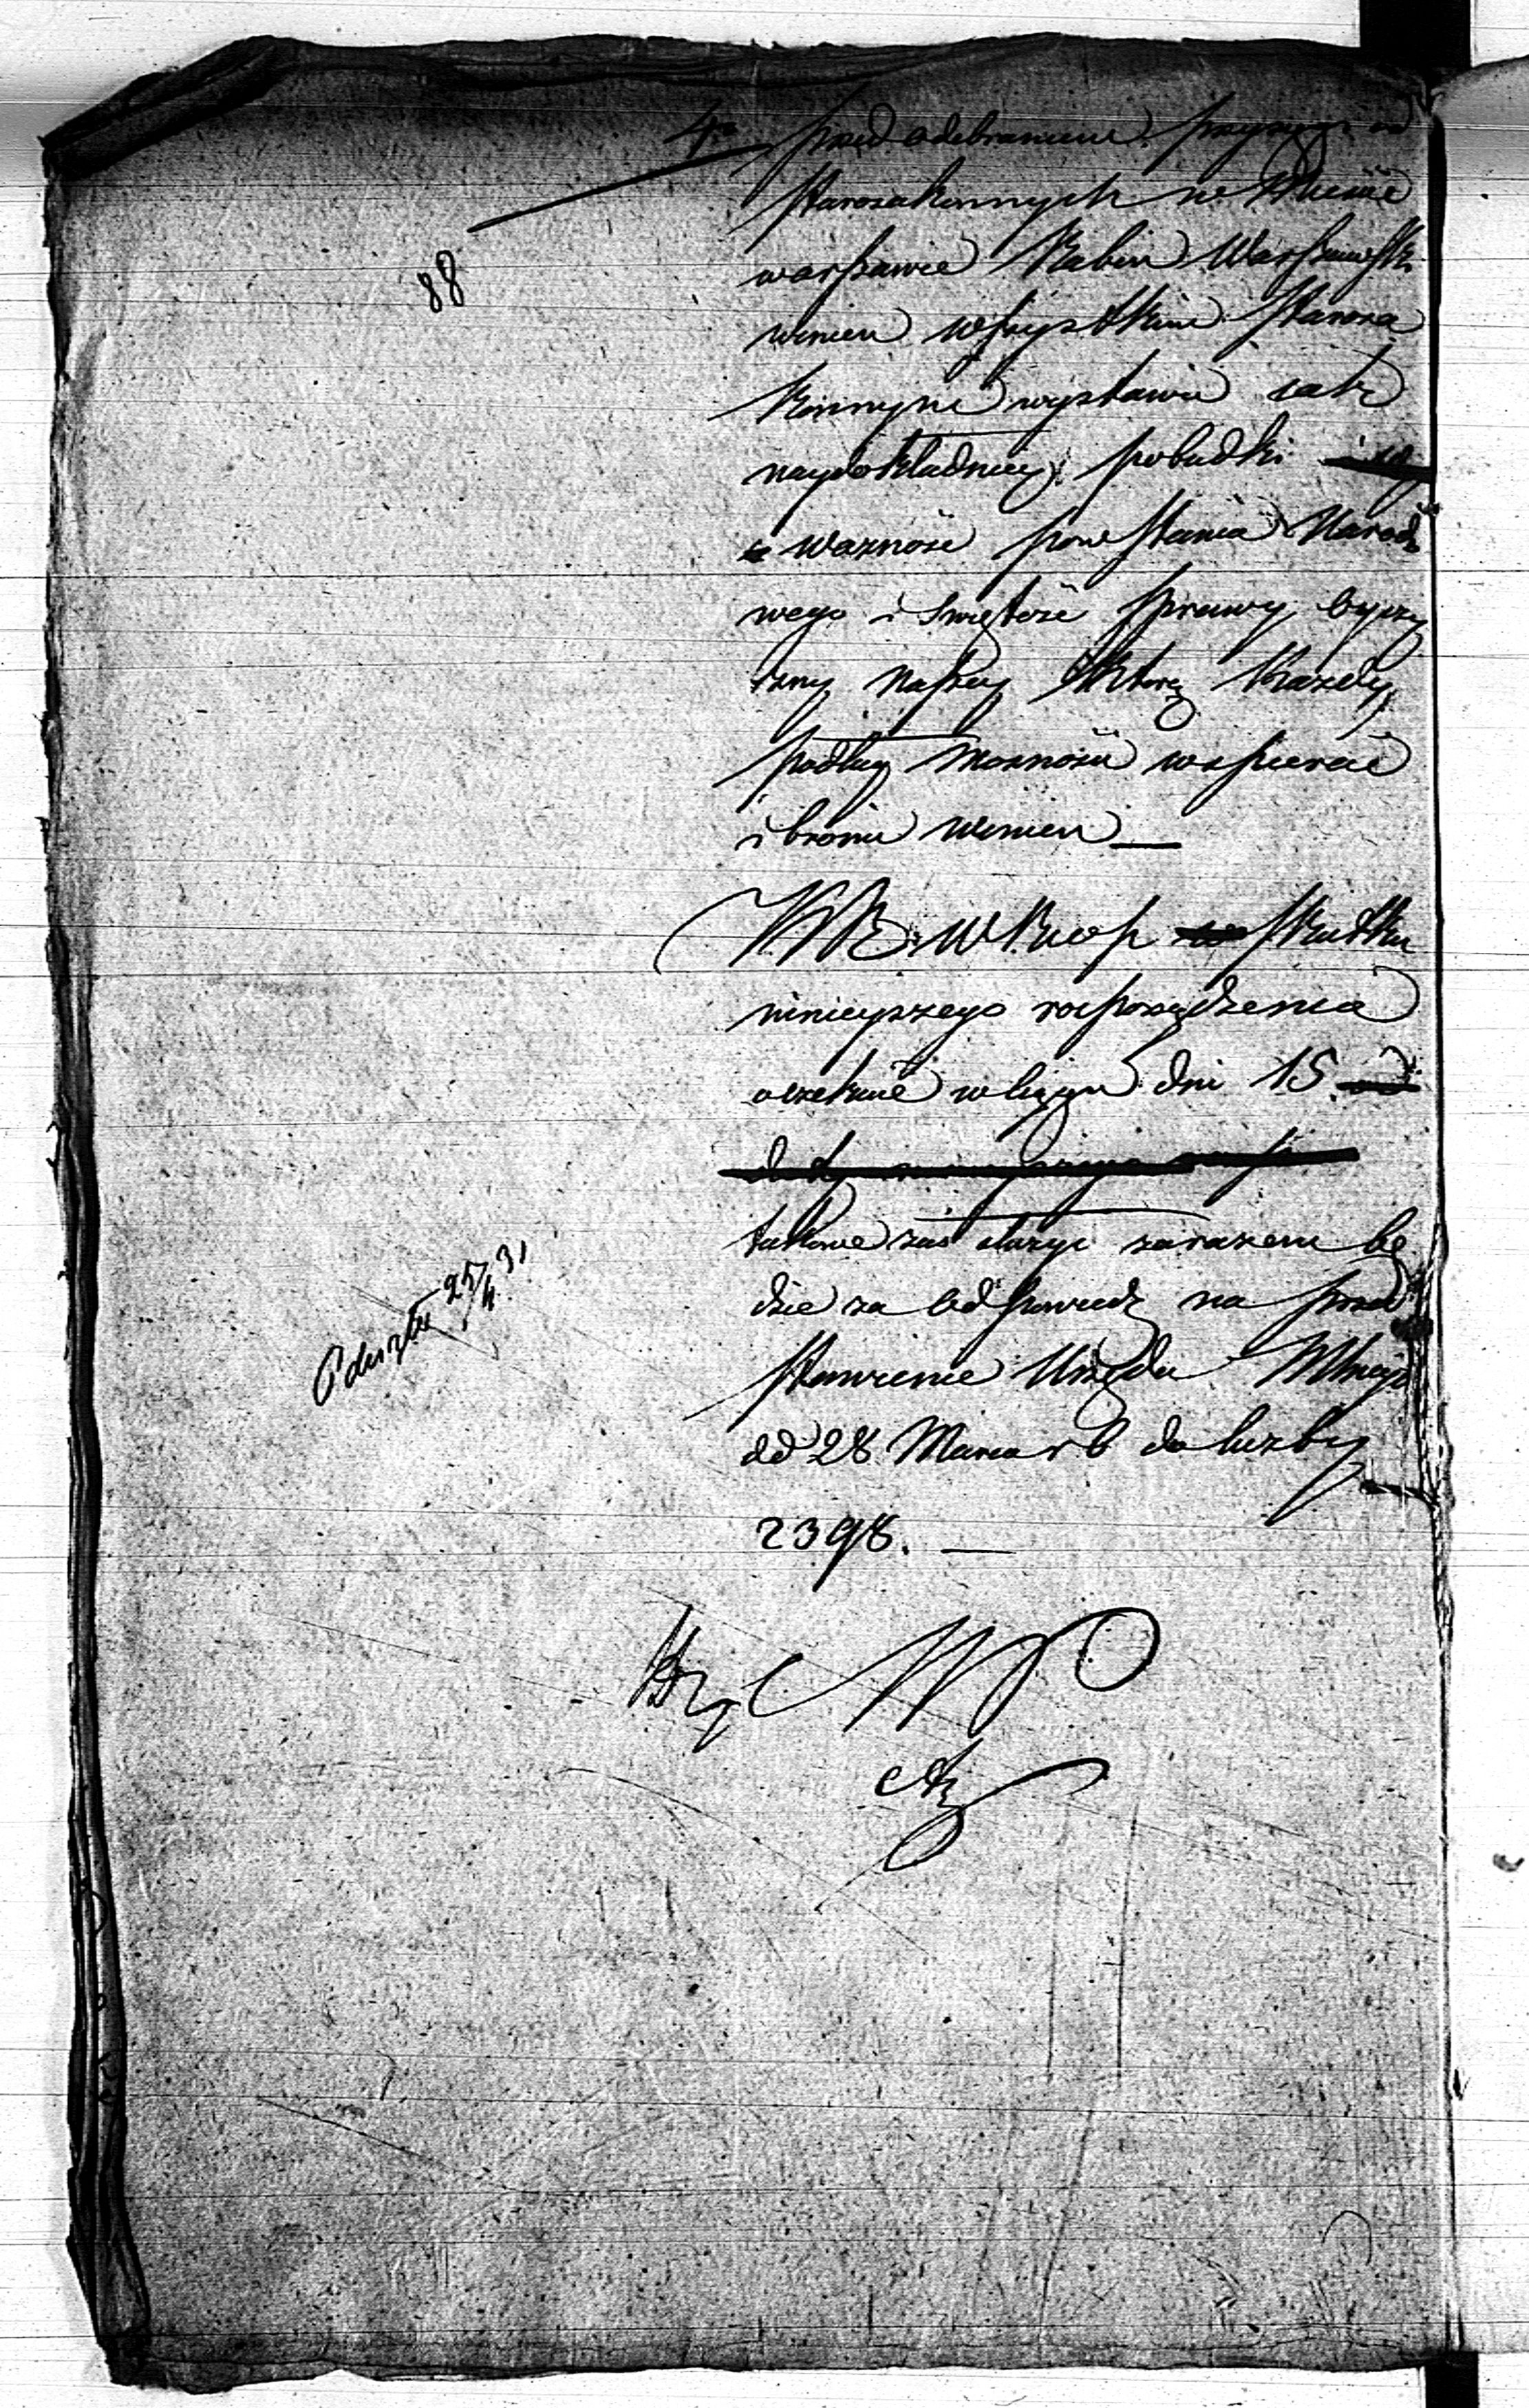 4o przed odebraniem przysięgi od
starozakonnych w Mieście
warszawie Rabin Warszawski
winien wszystkim staroza
konnym wystawić iak
naydokładniey pobudki
ważność powstania Narodo
wego i świętość sprawy oyczy
zny naszey którą każdy
podług możności wspierać
i bronić winien —
88
KRSW skutku
ninieyszego rozporządzenia
oczekuie w ciągu dni 15.
takowe zaś służyć zarazem bę
dzie za odpowiedź na przed
stawienie Urzędu Mnicyp
od 28 Marca r b do liczby
2398. —
25/4 31